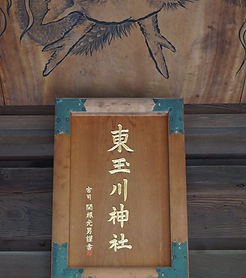 東玉川神社
宮司 関根光男謹書